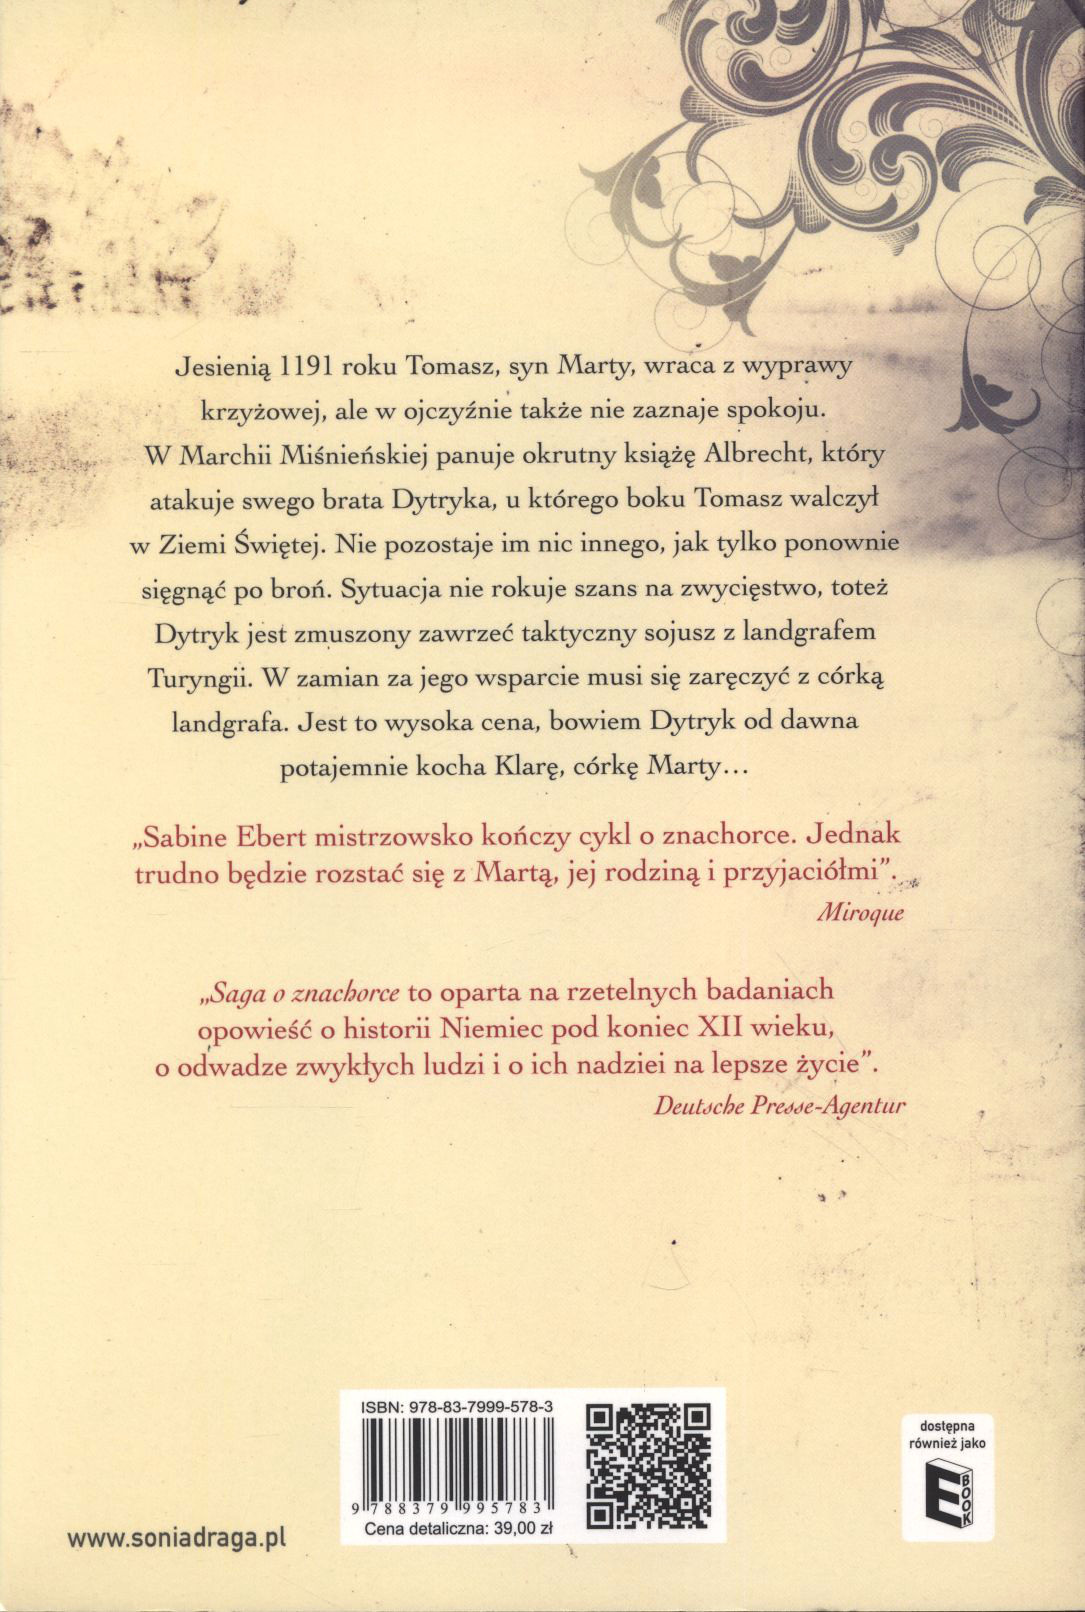 Jesienią 1191 roku Tomasz, syn Marty, wraca z wyprawy
krzyżowej, ale w ojczyźnie także nie zaznaje spokoju.
W Marchii Miśnieńskiej panuje okrutny książę Albrecht, który
atakuje swego brata Dytryka, u którego boku Tomasz walczył
w Ziemi Świętej. Nie pozostaje im nic innego, jak tylko ponownie
sięgnąć po broń. Sytuacja nie rokuje szans na zwycięstwo, toteż
Dytryk jest zmuszony zawrzeć taktyczny sojusz z landgrafem
Turyngii. W zamian za jego wsparcie musi się zaręczyć z córką
landgrafa. Jest to wysoka cena, bowiem Dytryk od dawna
potajemnie kocha Klarę, córkę Marty...
„Sabine Ebert mistrzowsko kończy cykl o znachorce. Jednak
trudno będzie rozstać się z Martą, jej rodziną i przyjaciółmi”.
Miroque
„Saga o znachorce to oparta na rzetelnych badaniach
opowieść o historii Niemiec pod koniec XII wieku,
o odwadze zwykłych ludzi i o ich nadziei na lepsze życie”.
Deutsche Presse-Agentur
ISBN: 978-83-7999-578-3
9 788379 995783
Cena detaliczna: 39,00 zł
dostępna
również jako
E BOOK
www.soniadraga.pl